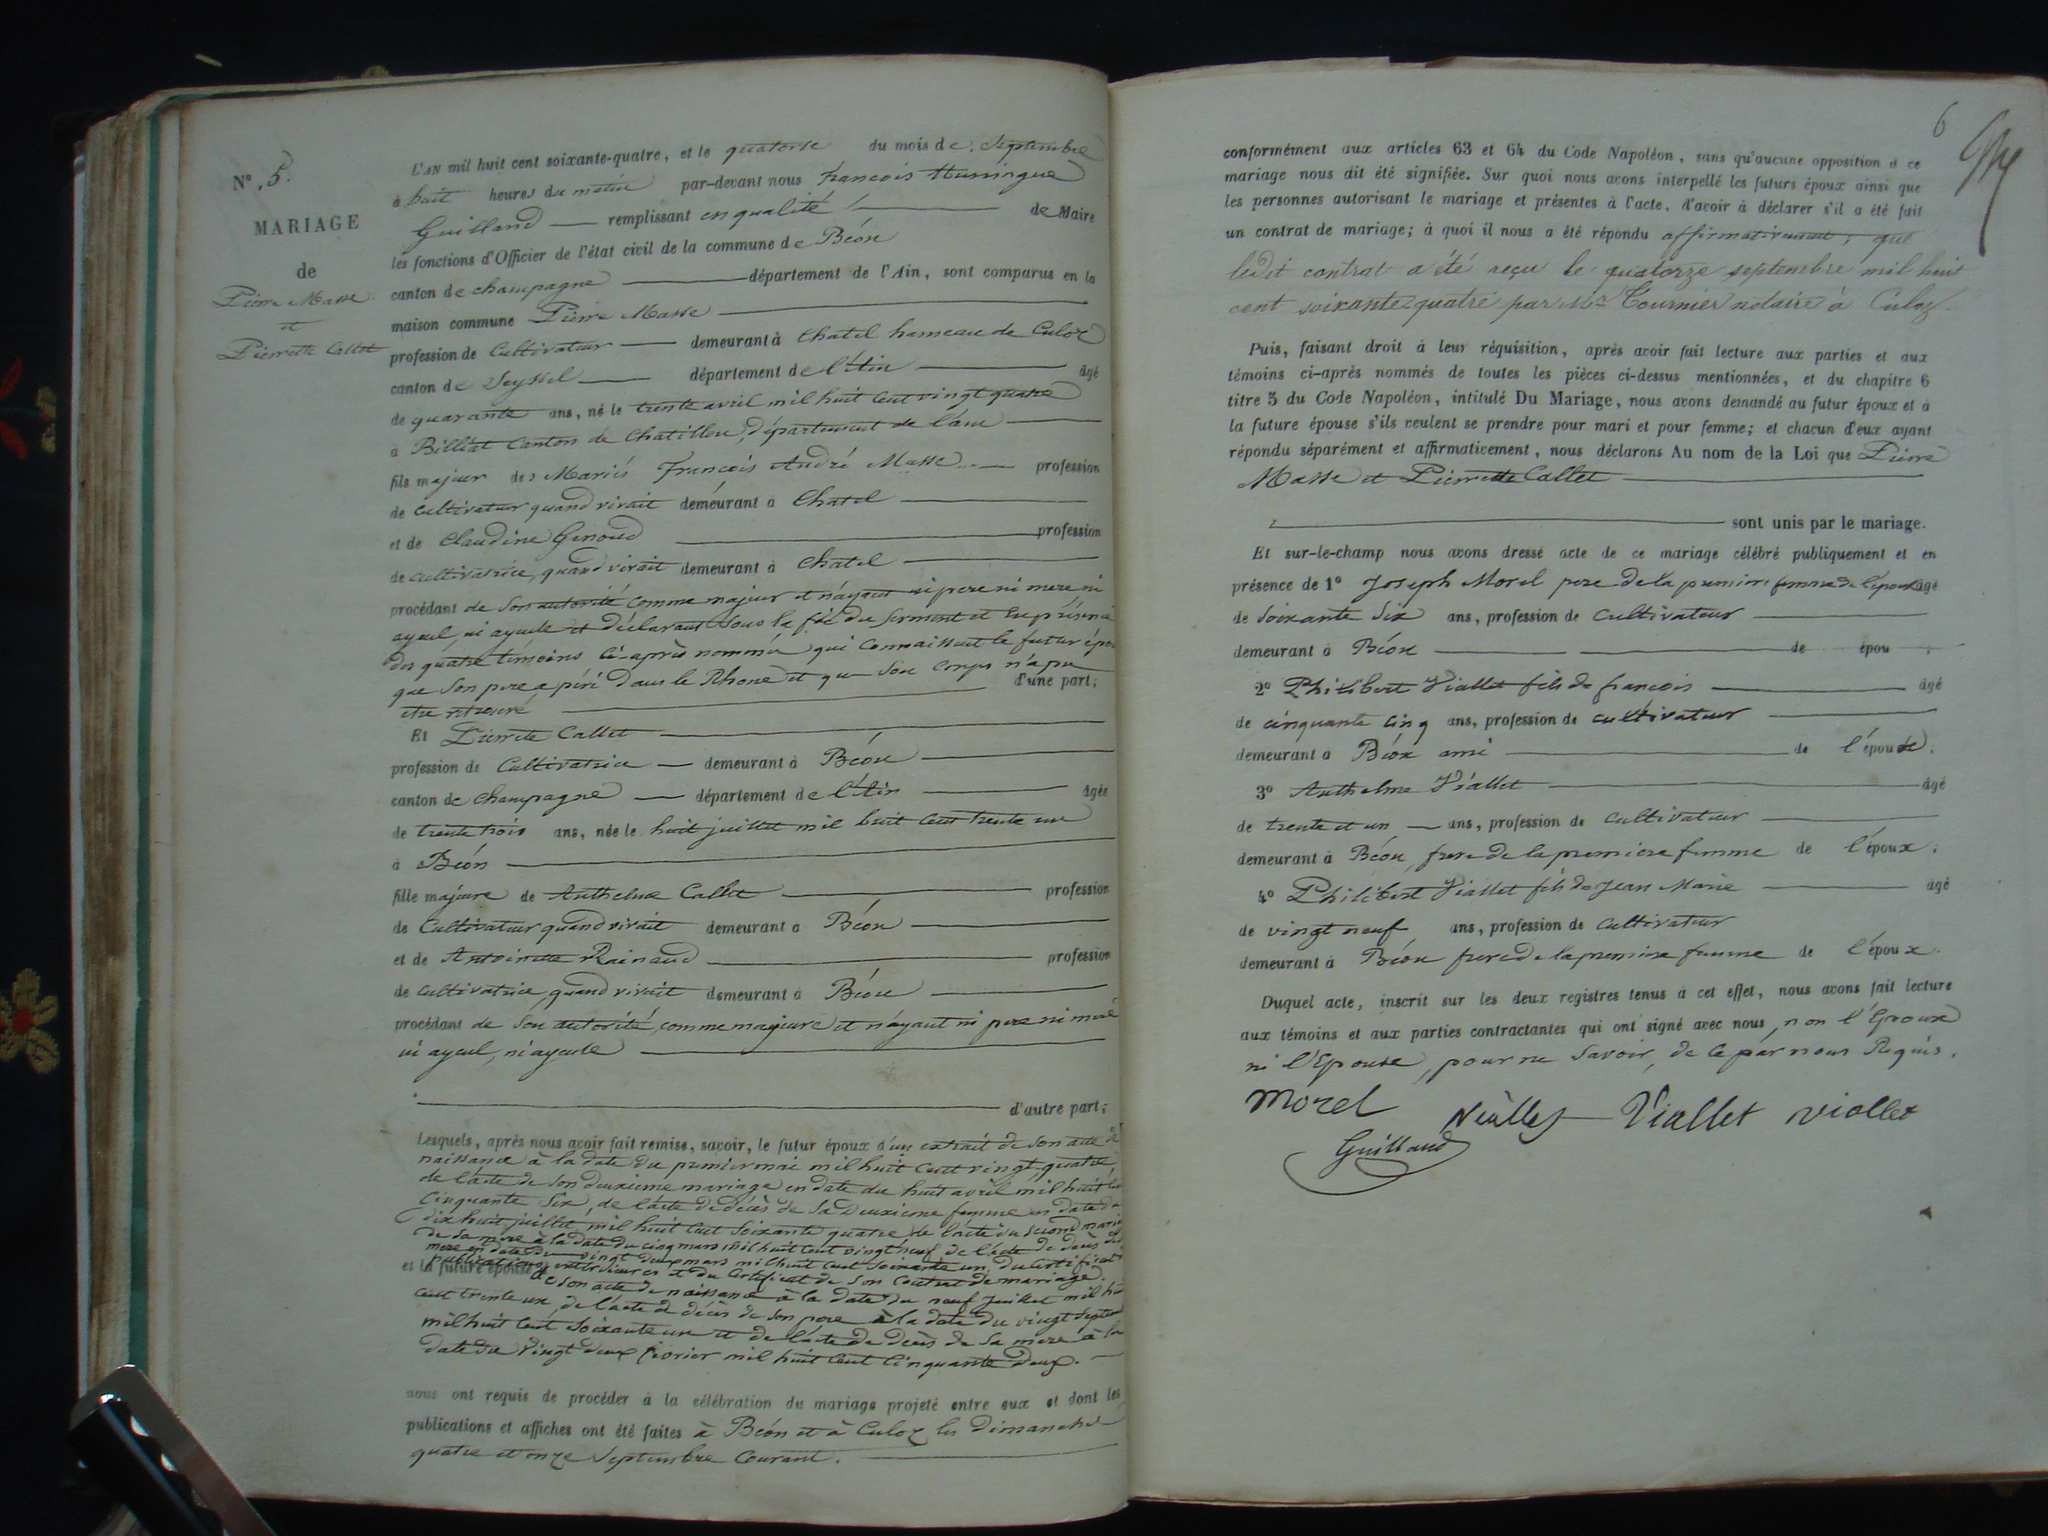 N° 5.
MARIAGE
de
Pierre Masse
et
Pierrette Callet
L'AN mil huit cent soixante-quatre, et le quatorze du mois de Septembre
à huit heures du matin par-devant nous François
Guilland remplissant en qualité de Maire
les fonctions d'Officier de l'état civil de la commune de Béon
canton de Champagne département de l'Ain, sont comparus en la
maison commune Pierre Masse
profession de Cultivateur demeurant à Chatel hameau de Culoz
canton de Seyssel département de l'Ain âgé
de quarante ans, né le trente avril mil huit cent vingt quatre
à Billiat Canton de Chatillon, département de l'ain
fils majeur des Mariés François André Masse profession
de cultivateur quand vivait demeurant à Chatel
et de Claudine Genoud profession
de cultivatrice, quand vivait demeurant à Chatel
procédant de son autorité comme majeur et n'ayant ni pere ni mere, ni
ayeul, ni ayeule et déclarant sous la foi du serment et en présence
des quatre témoins ci-après nommés qui connaissent le futur époux
que son pere a péri dans le Rhone et que son corps n'a pu
être retrouvé d'une part;
Et Pierrette Callet
profession de Cultivatrice demeurant à Béon
canton de Champagne département de l'Ain âgée
de trente trois ans, née le huit juillet mil huit cent trente un
à Béon
fille majeure de Anthelme Callet profession
de Cultivateur quand vivait demeurant à Béon
et de Antoinette Rainaud profession
de cultivatrice, quand vivait demeurant à Béon
procédant de son autorité, comme majeure et n'ayant ni pere ni mere
ni ayeul, ni ayeule
d'autre part;
Lesquels, après nous avoir fait remise, savoir, le futur époux d'un extrait de son acte de
naissance à la date du premier mai mil huit cent vingt quatre,
de l'acte de son deuxieme mariage en date du huit avril mil huit cent
cinquante six, de l'acte de décès de sa deuxieme femme en date du
dix huit juillet mil huit cent soixante quatre, de l'acte du second mariage
de sa mere à la date du cinq mars mil huit cent vingt neuf, de l'acte de décès de sa
mere en date du vingt deux mars mil huit cent soixante un, du certificat de
publications et du certificat de son contrat de mariage.
et la future épouse de son acte de naissance à la date du neuf juillet mil huit
cent trente un, de l'acte de décès de son pere à la date du vingt septembre
mil huit cent soixante un et de l'acte de décès de sa mere à la
date du vingt deux fevrier mil huit cent cinquante deux.
nous ont requis de procéder à la célébration du mariage projeté entre eux et dont les
publications et affiches ont été faites à Béon et à Culoz les dimanches
quatre et onze Septembre Courant.
6
conformément aux articles 63 et 64 du Code Napoléon, sans qu'aucune opposition à ce
mariage nous ait été signifiée. Sur quoi nous avons interpellé les futurs époux ainsi que
les personnes autorisant le mariage et présentes à l'acte, d'avoir à déclarer s'il a été fait
un contrat de mariage; à quoi il nous a été répondu affirmativement, que
ledit contrat a été reçu le quatorze septembre mil huit
cent soixante quatre par Me Tournier notaire à Culoz.
Puis, faisant droit à leur réquisition, après avoir fait lecture aux parties et aux
témoins ci-après nommés de toutes les pièces ci-dessus mentionnées, et du chapitre 6
titre 5 du Code Napoléon, intitulé Du Mariage, nous avons demandé au futur époux et à
la future épouse s'ils veulent se prendre pour mari et pour femme; et chacun d'eux ayant
répondu séparément et affirmativement, nous déclarons Au nom de la Loi que Pierre
Masse et Pierrette Callet
sont unis par le mariage.
Et sur-le-champ nous avons dressé acte de ce mariage célébré publiquement et en
présence de 1° Joseph Morel pere de la premiere femme de l'époux âgé
de soixante six ans, profession de cultivateur
demeurant à Béon de épou
2° Philibert Viallet fils de françois âgé
de cinquante cinq ans, profession de cultivateur
demeurant à Béon ami de l'époux.
3° Anthelme Viallet âgé
de trente et un ans, profession de cultivateur
demeurant à Béon, frere de la premiere femme de l'époux;
4° Philibert Viallet fils de Jean Marie âgé
de vingt neuf ans, profession de cultivateur
demeurant à Béon frere de la premiere femme de l'époux.
Duquel acte, inscrit sur les deux registres tenus à cet effet, nous avons fait lecture
aux témoins et aux parties contractantes qui ont signé avec nous, non l'Epoux
ni l'Epouse, pour ne savoir, de ce par nous Requis.
Morel Viallet Viallet viallet
Guilland